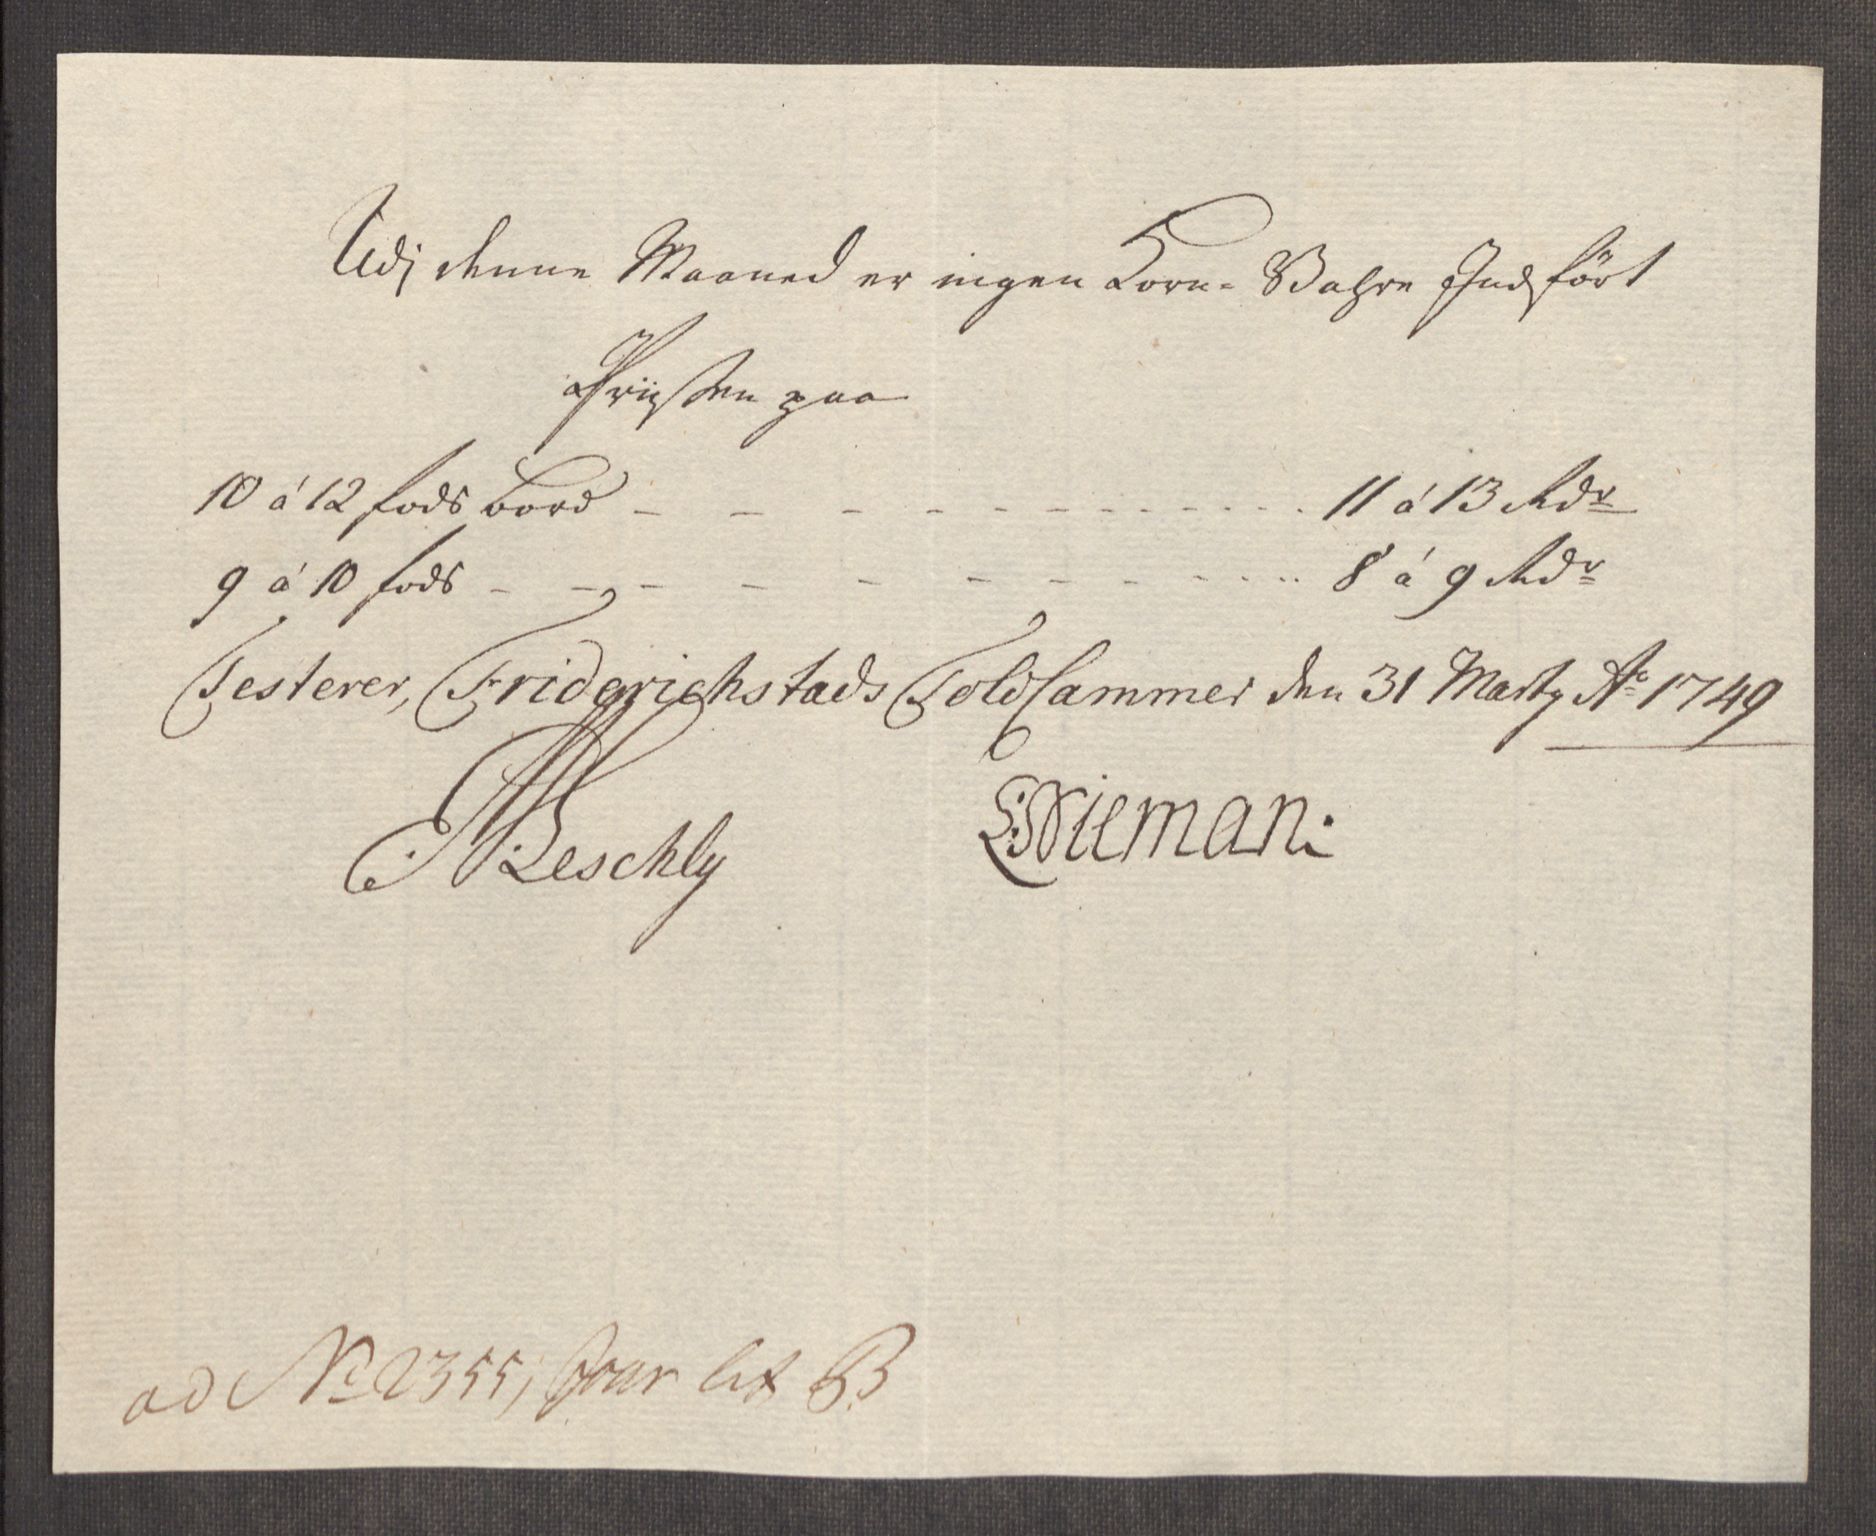 Udj denne Maaned er ingen Korn-Vahre Indfört
Priisen paa
10 á 12 fods bord - - - - - - - - - - 11 á 13 Rdr
9 á 10 fods - - - - - - - - - - 8 á 9 Rdr
Testerer, Friderichstads Told Cammer den 31 Martÿ Ao 1749
Leschly
L: Nieman:
ad No 2355, Jour lit B